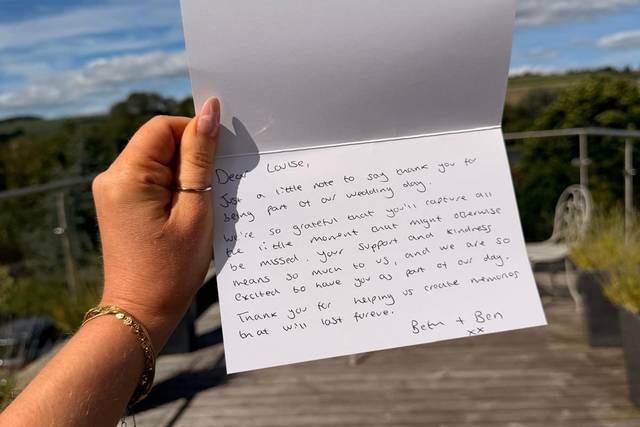 Dear Louise,
Just a little note to say thank you for
being part of our wedding day.
We're so grateful that you'll capture all
the little moment that might otherwise
be missed. Your support and kindness
means so much to us, and we are so
excited to have you as part of our day.
Thank you for helping us create memories
that will last foreve.
Beth + Ben
xx